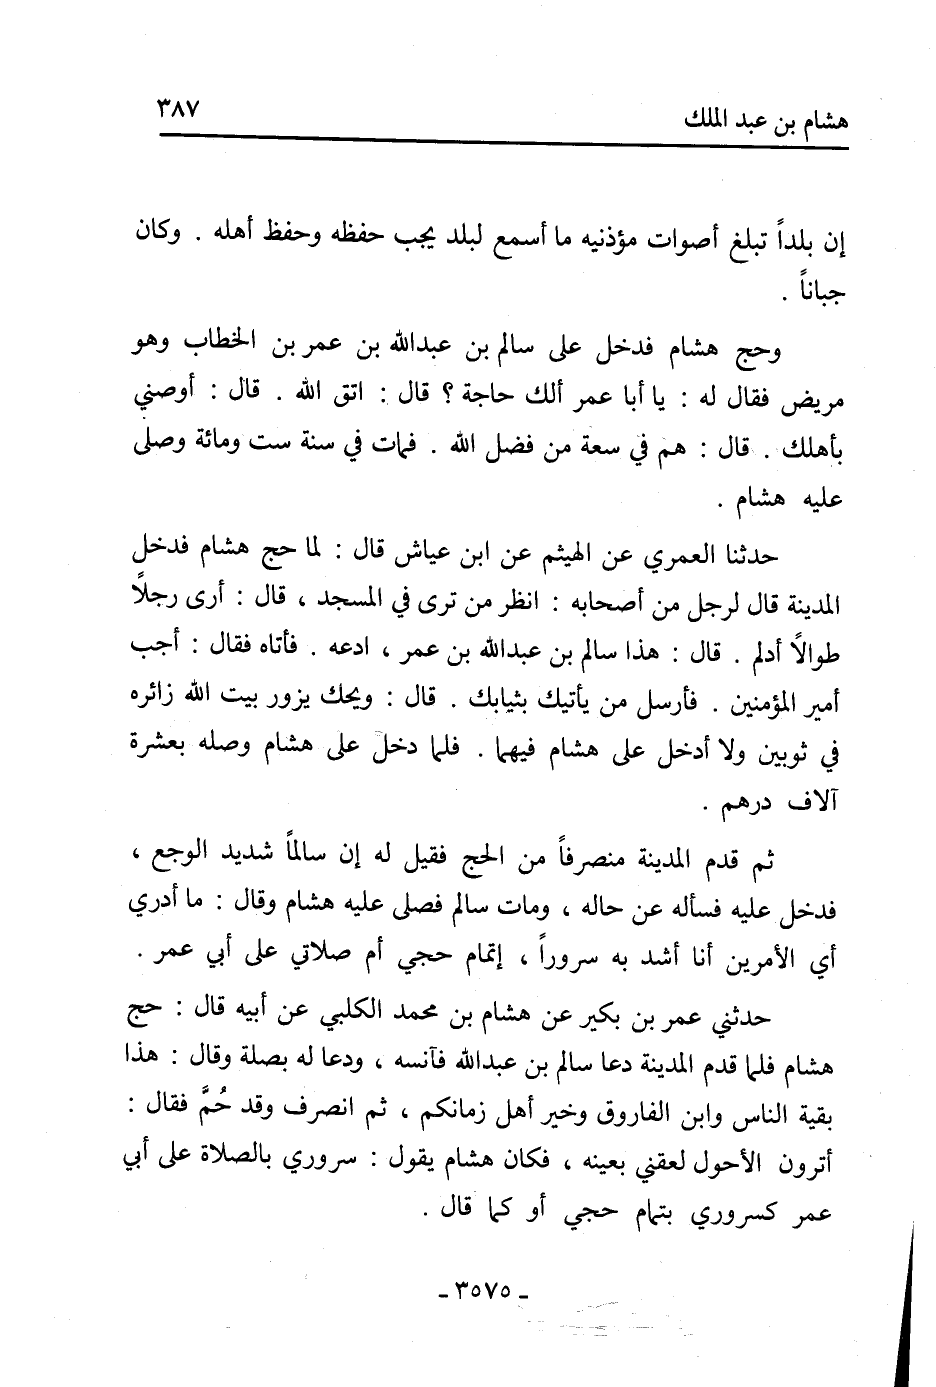 هشام بن عبد الملك
٣٨٧
إن بلداً تبلغ أصوات مؤذنيه ما أسمع لبلد يجب حفظه وحفظ أهله . وكان
جباناً .
وحج هشام فدخل على سالم بن عبدالله بن عمر بن الخطاب وهو
مريض فقال له : يا أبا عمر ألك حاجة ؟ قال : اتق الله . قال : أوصني
بأهلك . قال : هم في سعة من فضل الله . فمات في سنة ست ومائة وصلى
عليه هشام .
حدثنا العمري عن الهيثم عن ابن عياش قال : لما حج هشام فدخل
المدينة قال لرجل من أصحابه : انظر من ترى في المسجد ، قال : أرى رجلاً
طوالاً أدلم . قال : هذا سالم بن عبدالله بن عمر ، ادعه . فأتاه فقال : أجب
أمير المؤمنين . فأرسل من يأتيك بثيابك . قال : ويحك يزور بيت الله زائره
في ثوبين ولا أدخل على هشام فيهما . فلما دخل على هشام وصله بعشرة
آلاف درهم .
ثم قدم المدينة منصرفاً من الحج فقيل له إن سالماً شديد الوجع ،
فدخل عليه فسأله عن حاله ، ومات سالم فصلى عليه هشام وقال : ما أدري
أي الأمرين أنا أشد به سروراً ، إتمام حجي أم صلاتي على أبي عمر .
حدثني عمر بن بكير عن هشام بن محمد الكلبي عن أبيه قال : حج
هشام فلما قدم المدينة دعا سالم بن عبدالله فآنسه ، ودعا له بصلة وقال : هذا
بقية الناس وابن الفاروق وخير أهل زمانكم ، ثم انصرف وقد حُمَّ فقال :
أترون الأحول لعقني بعينه ، فكان هشام يقول : سروري بالصلاة على أبي
عمر كسروري بتمام حجي أو كما قال .
- ٣٥٧٥ -